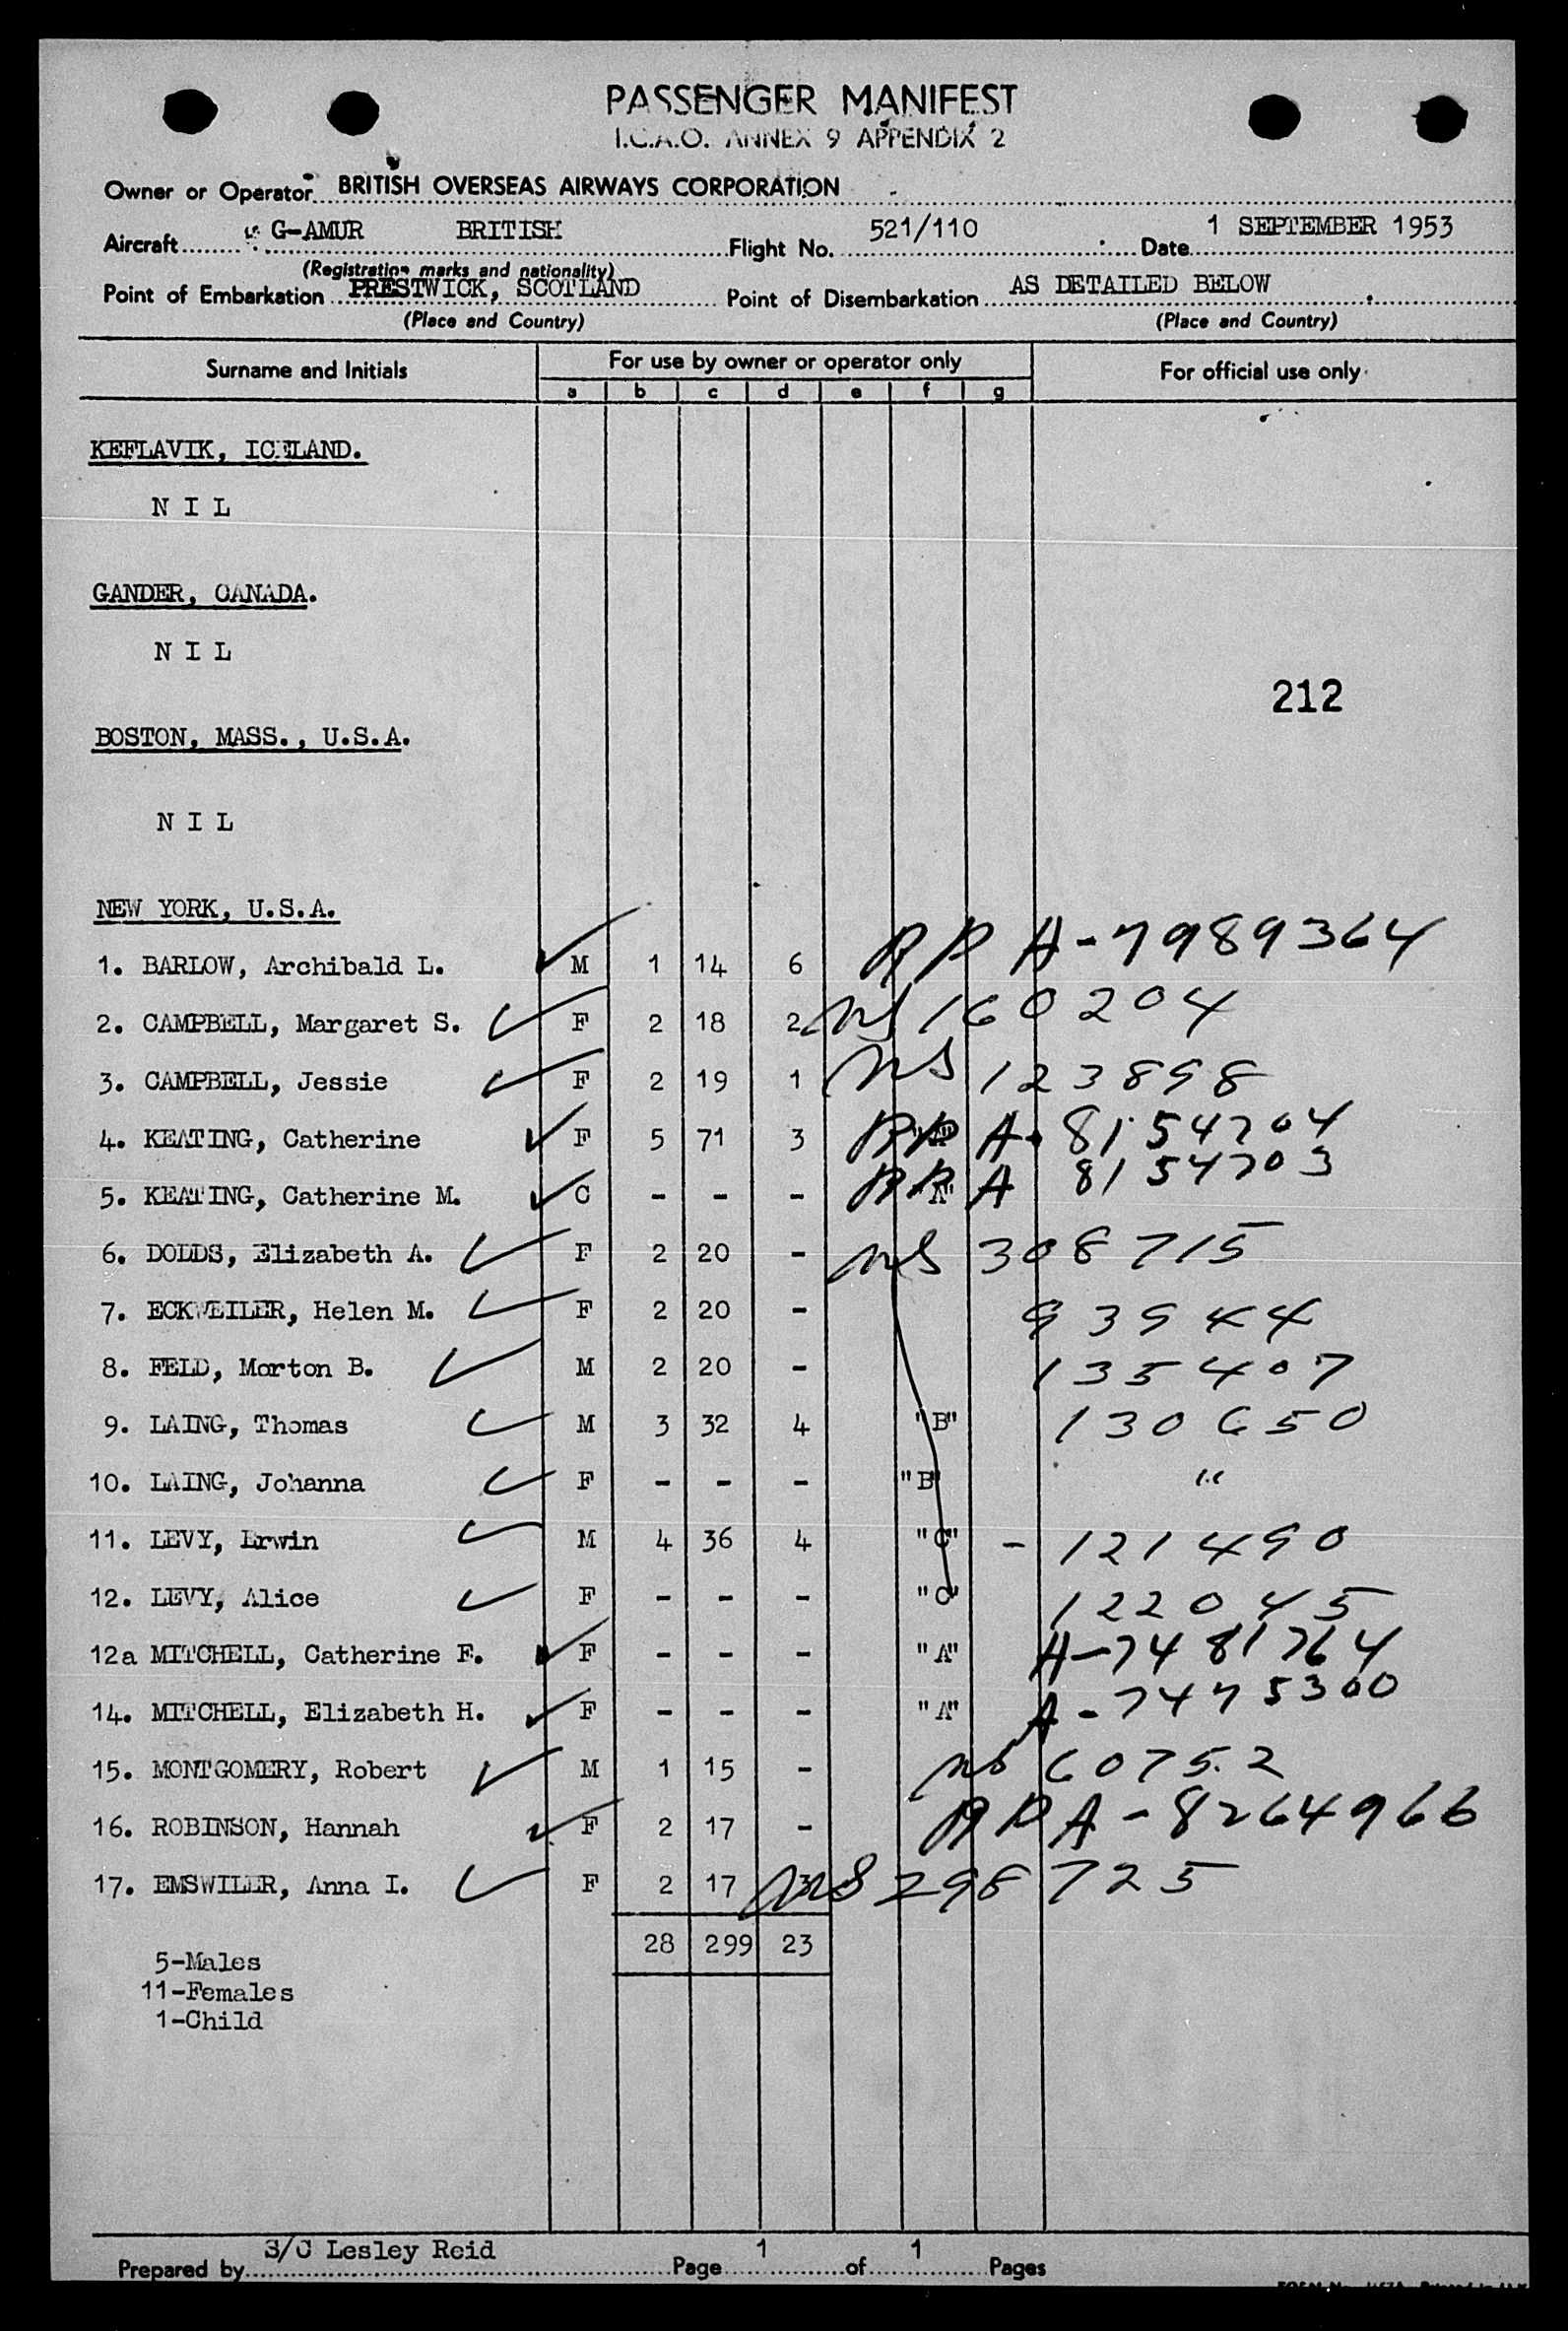 PASSENGER MANIFEST
I.C.A.O. ANNEX 9 APPENDIX 2
Owner or Operator BRITISH OVERSEAS AIRWAYS CORPORATION
Aircraft G-AMUR BRITISH Flight No. 521/110 Date 1 SEPTEMBER 1953
(Registration marks and nationality)
Point of Embarkation PRESTWICK, SCOTLAND Point of Disembarkation AS DETAILED BELOW
(Place and Country) (Place and Country)
Surname and Initials For use by owner or operator only For official use only
a b c d e f g
KEFLAVIK, ICELAND.
N I L
GANDER, CANADA.
N I L
212
BOSTON, MASS., U.S.A.
N I L
NEW YORK, U.S.A.
1. BARLOW, Archibald L. M 1 14 6 RP A-7989364
2. CAMPBELL, Margaret S. F 2 18 2 ns 160204
3. CAMPBELL, Jessie F 2 19 1 ns 123898
4. KEATING, Catherine F 5 71 3 RP "A" A-8154704
5. KEATING, Catherine M. C - - - RP "A" A 8154703
6. DODDS, Elizabeth A. F 2 20 - ns 308715
7. ECKWEILER, Helen M. F 2 20 - 93944
8. FELD, Morton B. M 2 20 - 135407
9. LAING, Thomas M 3 32 4 "B" 130650
10. LAING, Johanna F - - - "B" "
11. LEVY, Erwin M 4 36 4 "C" - 121490
12. LEVY, Alice F - - - "C" 122045
12a MITCHELL, Catherine F. F - - - "A" A-7481764
14. MITCHELL, Elizabeth H. F - - - "A" A-7475300
15. MONTGOMERY, Robert M 1 15 - ns 60752
16. ROBINSON, Hannah F 2 17 - RP A-8264966
17. EMSWILER, Anna I. F 2 17 3 ns 298725
28 299 23
5-Males
11-Females
1-Child
Prepared by S/C Lesley Reid Page 1 of 1 Pages